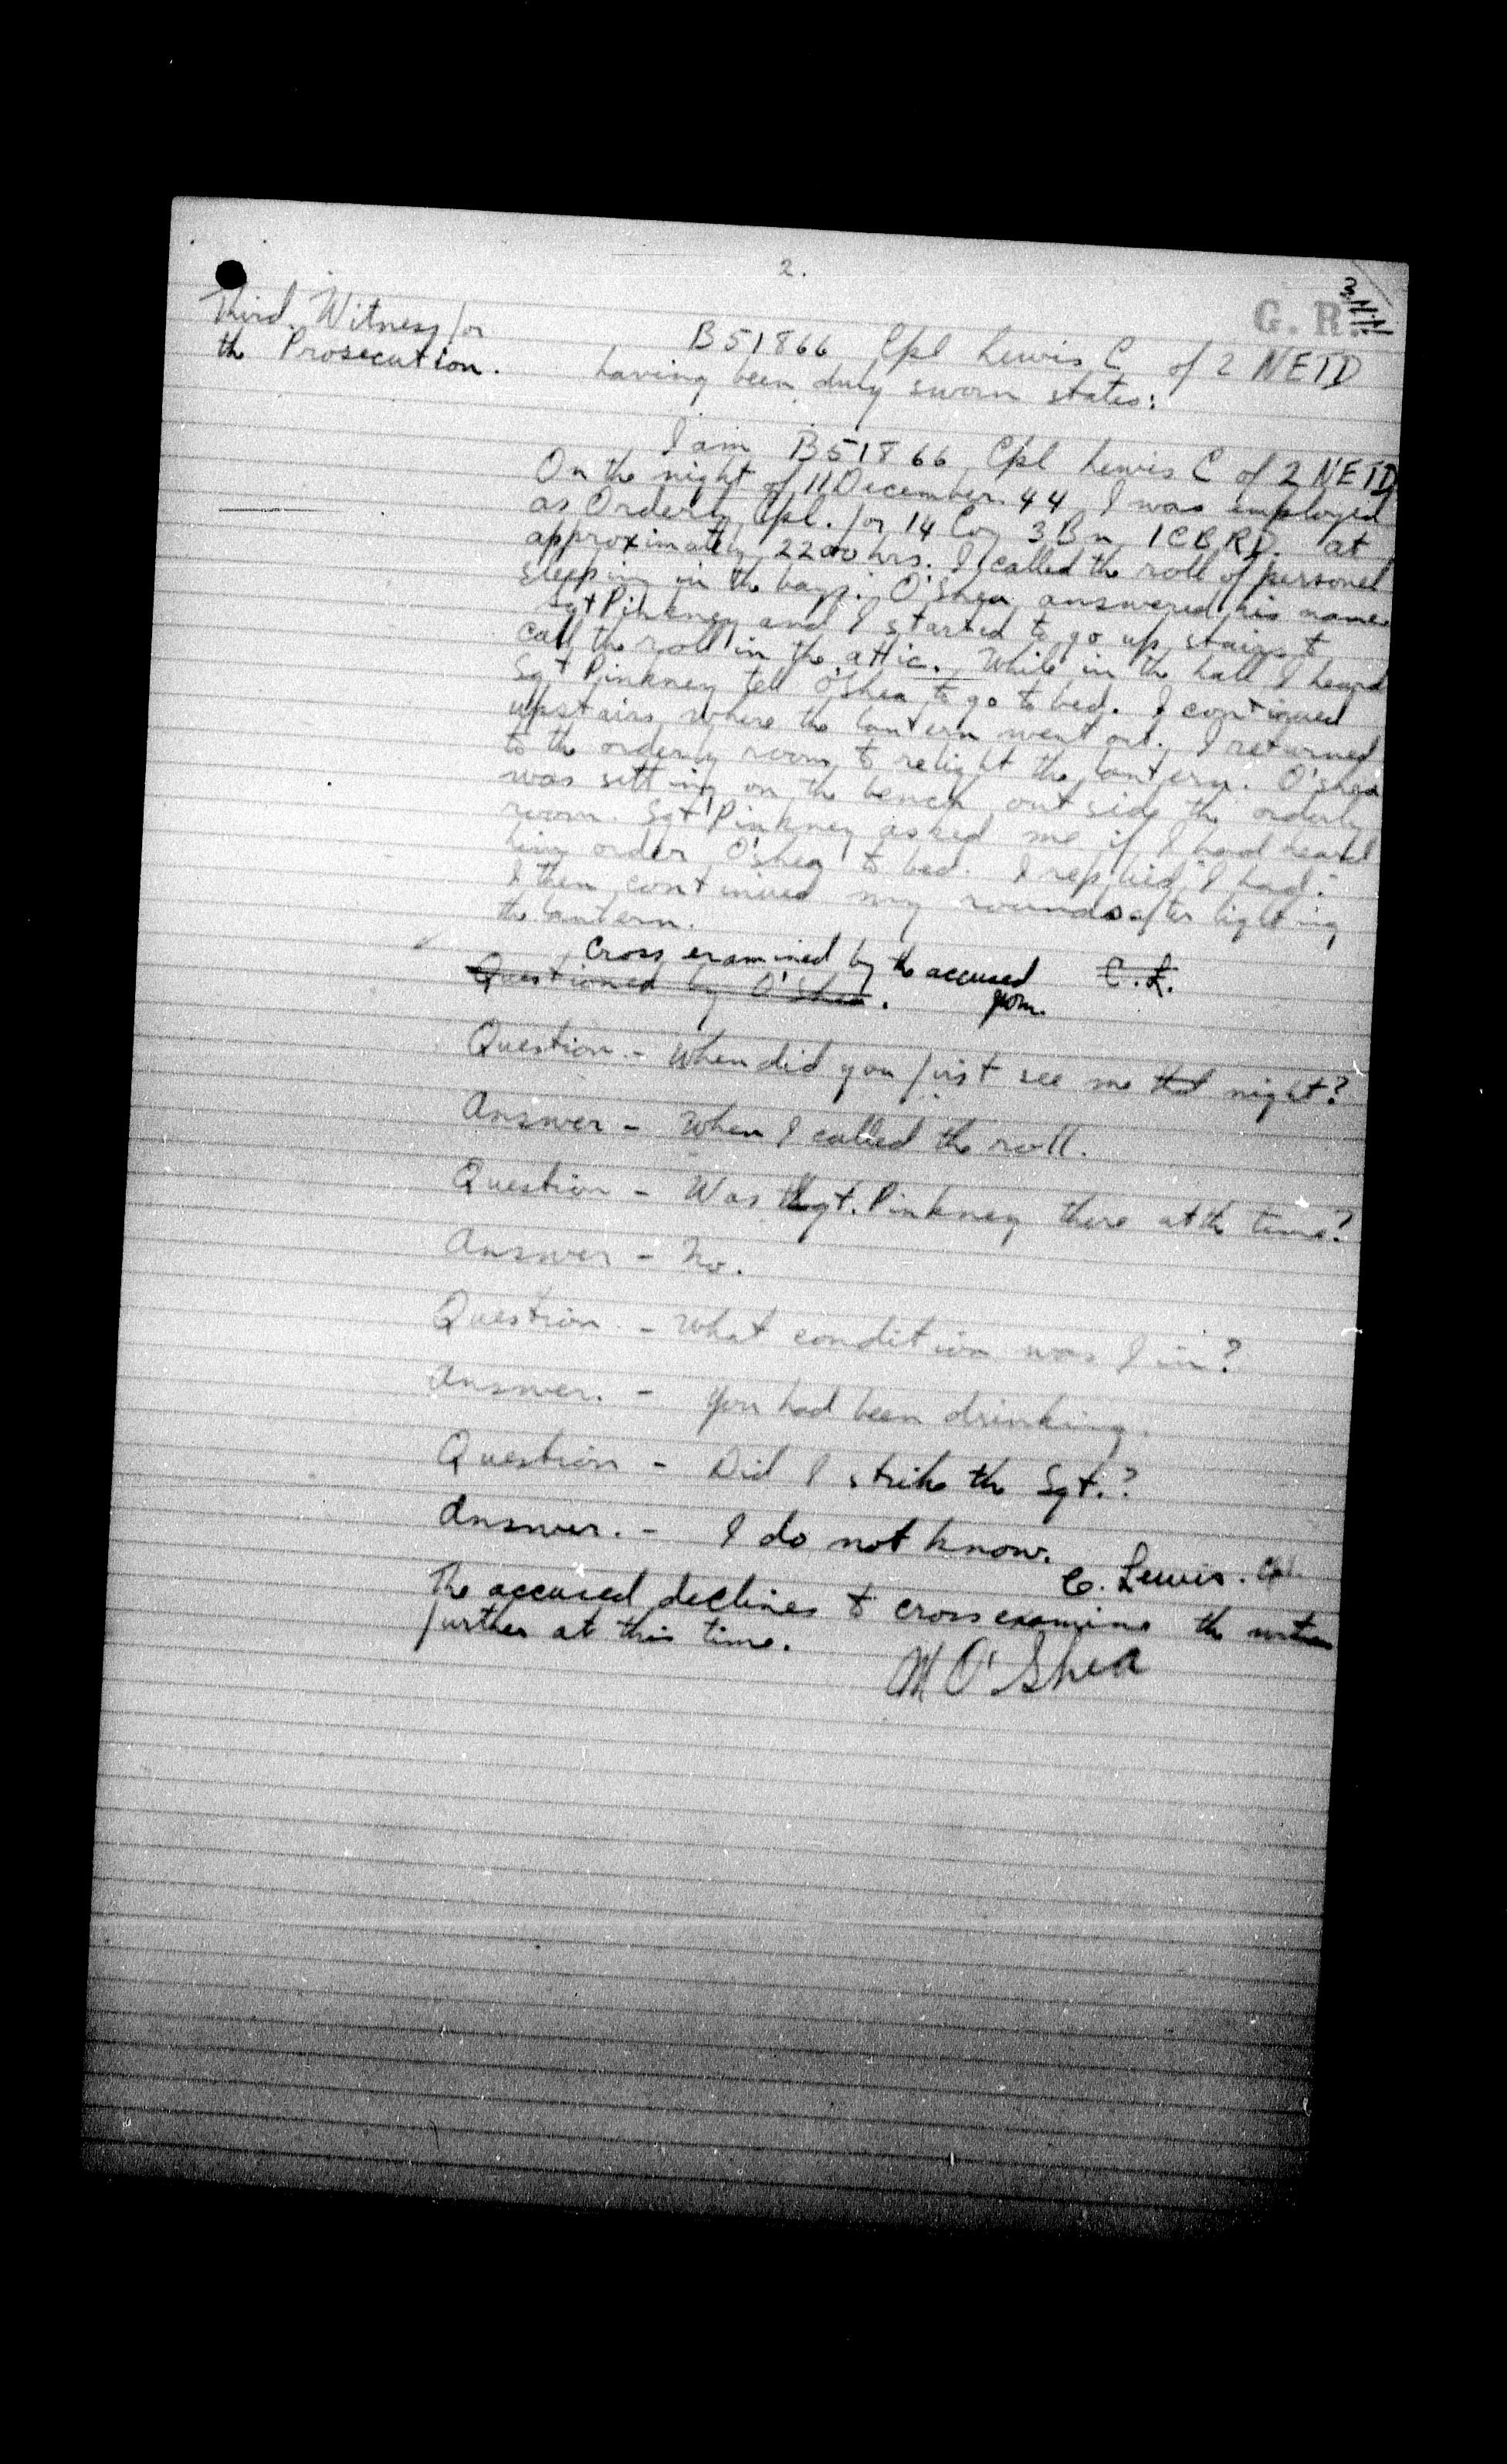 2.
G. R.
Third Witness for
the Prosecution.
B51866 Cpl Lewis C of 2 NETD
having been duly sworn states:
I am B51866 Cpl Lewis C of 2 NETD
On the night of 11 December 44 I was employed
as Orderly Cpl. for 14 Coy 3 Bn 1CBRD. at
approximately 2200 hrs. I called the roll of personel
sleeping in the bays. O'Shea answered his name
Sgt Pinkney and I started to go up stairs t
call the roll in the attic. While in the hall I heard
Sgt Pinkney tell O'Shea to go to bed. I continued
upstairs where the lantern went out. I returned
to the orderly room to relight the lantern. O'Shea
was sitting on the bench outside the orderly
room. Sgt Pinkney asked me if I had heard
him order O'Shea to bed. I replied "I had."
I then continued my rounds after lighting
the lantern.
Cross examined by the accused C.L.
Questioned by O'Shea.
Question - When did you first see me that night?
Answer - When I called the roll.
Question - Was Sgt. Pinkney there at the time?
Answer - No.
Question. - What condition was I in?
Answer. - You had been drinking.
Question - Did I strike the Sgt.?
Answer. - I do not know.
C. Lewis. Cpl.
The accused declines to cross examine the witness
further at this time.
M O'Shea